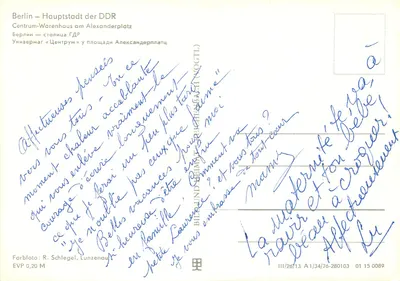 Berlin – Hauptstadt der DDR
Centrum-Warenhaus am Alexanderplatz
Берлин — столица ГДР
Универмаг «Центрум» у площади Александерплатц
Affectueuses pensées
vers vous tous. En ce
moment chaleur accablante
qui vous enlève vraiment le
courage d'écrire longuement
ce que je ferai un peu plus tard
"je n'oublie pas ceux que j'aime"
Belles vacances pour moi
si heureuse d'être
en famille. Comment va
petite Laurence? et vous tous?
Je vous embrasse de tout cœur
Mamy
La maternité te va, à
ravir et ton bébé,
beau à croquer!
Affectueusement
Farbfoto: R. Schlegel, Lunzenau
EVP 0,20 M
III/26/13 A 1/24/76 280103 01 15 0089